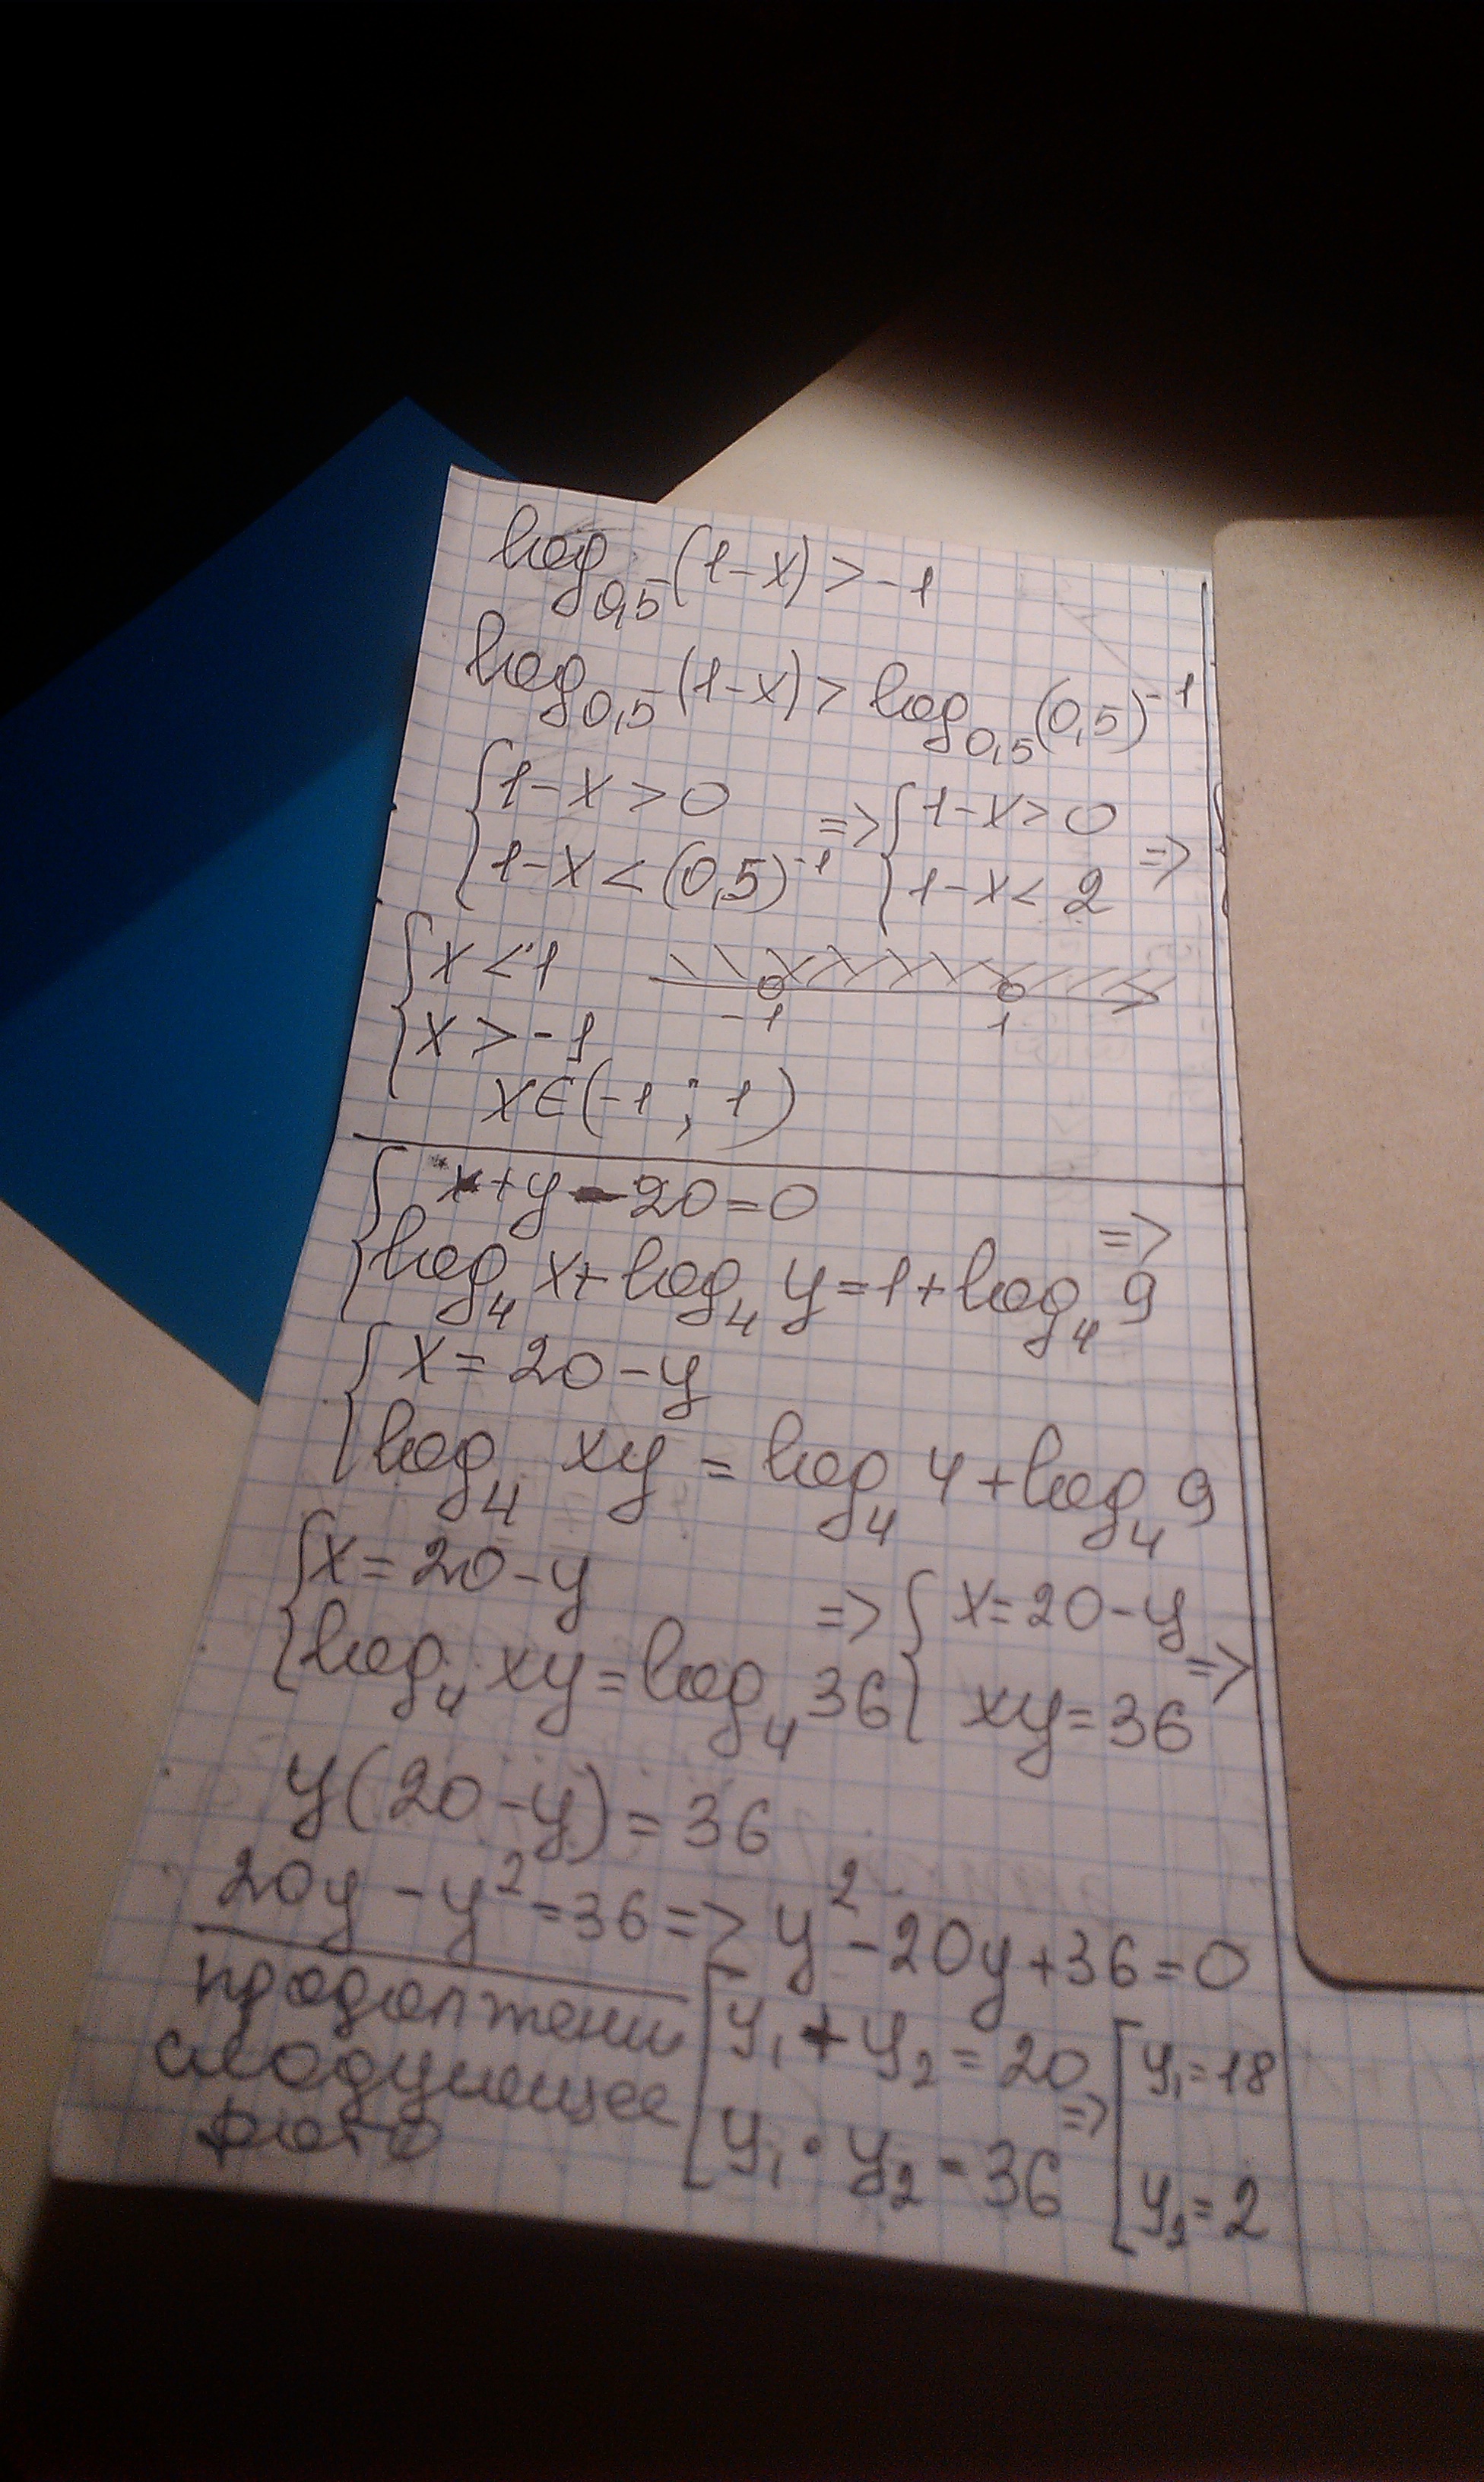 log₀,₅(1-x)>-1
log₀,₅(1-x)>log₀,₅(0,5)⁻¹
{1-x>0 => {1-x>0 =>
{1-x<(0,5)⁻¹ {1-x<2
{x<1
{x>-1
-1 1
x∈(-1;1)
{x+y-20=0 =>
{log₄x+log₄y=1+log₄9
{x=20-y
{log₄xy=log₄4+log₄9
{x=20-y => {x=20-y =>
{log₄xy=log₄36 {xy=36
y(20-y)=36
20y-y²=36=>y²-20y+36=0
продолжени
следующее
фото
[y₁+y₂=20 => [y₁=18
[y₁·y₂=36 [y₂=2